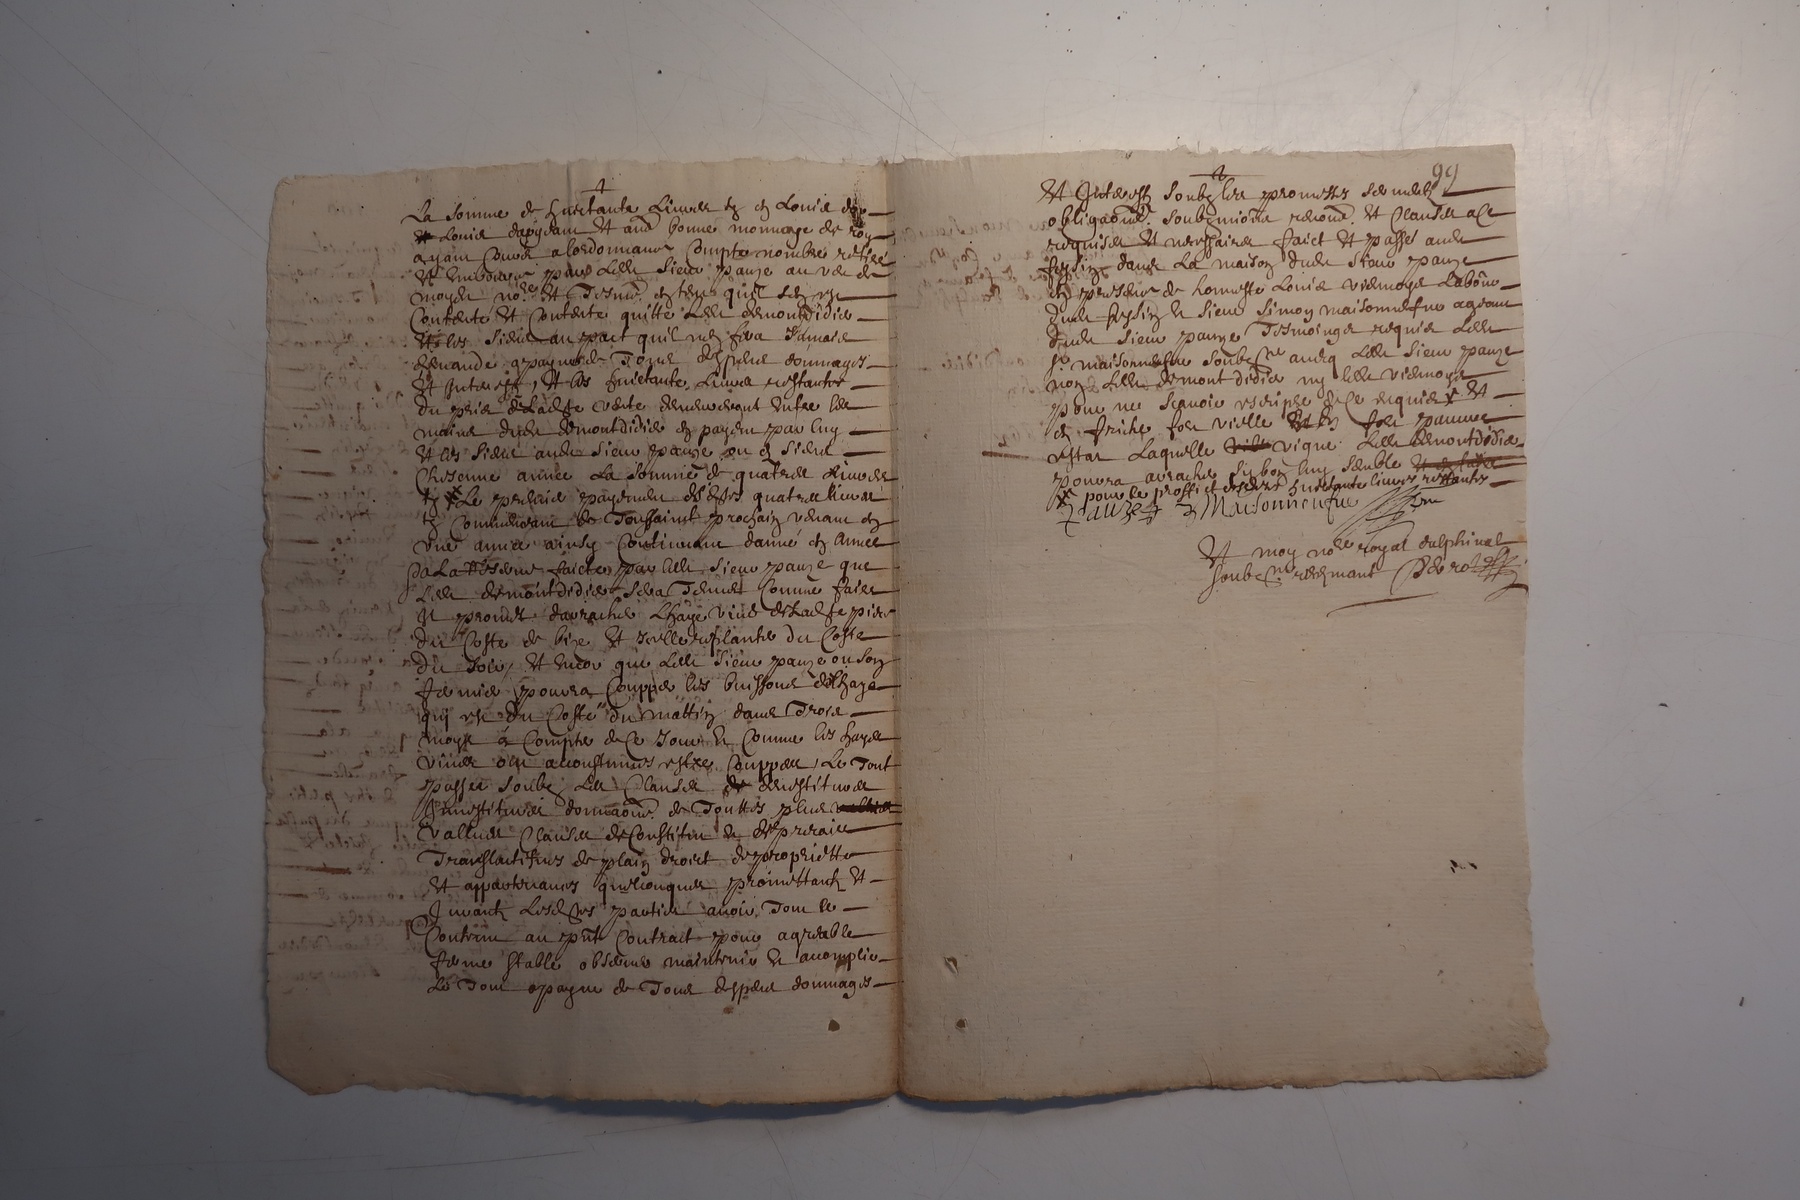 La somme de huictante livres tz en Louis dor
et Louis dargeant et autre bonne monnoye de roy
ayant cours a lordonnance comptee nombree retiree
et emboursee par ledit sieur pauze au veu de
moyd. no.re et tesmoins
contente et contente quitte ledit demontdidier
et les siens au pact quil nen fera Jamais
demande apayne de tous despens dommages
et interestz, et les huictante livres restantes
du prix de ladte vente demeureront entre les
mains dudit demontdidier en payera par luy
et les siens audit sieur pauze ou es siens
Chescune annee La somme de quatre livres
tz x Le premier payement desdtes quatre livres
tz commencant de Toussainct prochain venant en
une annee ainsy continuant dannee en annee
ledit demontdidier sera tenu comme faire
Il promet darracher lhaye vive de ladte piece
du coste de bize et icelle replanter du coste
du soir, et encor que ledit sieur pauze ou son
fermier pourra coupper les buissons de lhaye
qui est du costé du mattin dans trois
moys a compter de ce jour et comme les hayes
vives on a coustume estre couppees, Le tout
passé soubz les clauses de devestiture
Investiture donnaon. de touttes plus
vallues clauses de constitut et de precaire
Translatifves de plain droict de proprietté
et appartenances quelconques promettant et
Jurant lesdtes parties avoir tout le
Contenu au pnt Contrait pour agreable
ferme stable observer maintenir et accomplir
Le tout apayne de tous despens dommages
99
et Interestz soubz les promesses serments
obligaons. soubzmission renonc. et clauses a ce
requises et necessaires faict et passé audit
feysin dans la maison dudit sieur pauze
en presence de honneste Louis viemoye Labour
dudit feysin et sieur Simon maisonneufve agent
dudit sieur pauze Tesmoings requis ledit
sr. maisonneufve soubzné avecq ledit sieur pauze
non ledit demontdidier ny ledit viemoye
pour ne scavoir escripre de ce requis x et
en friche fort vielle et en fort pauvre
estat laquelle vigne ledit demontdidier
pourra arracher sy bon luy semble
x pour le proffict desdtes huictante livres restantes
Pauze Maisonneufve
Et moy no.re royal dalphinal
soubzné recepvant